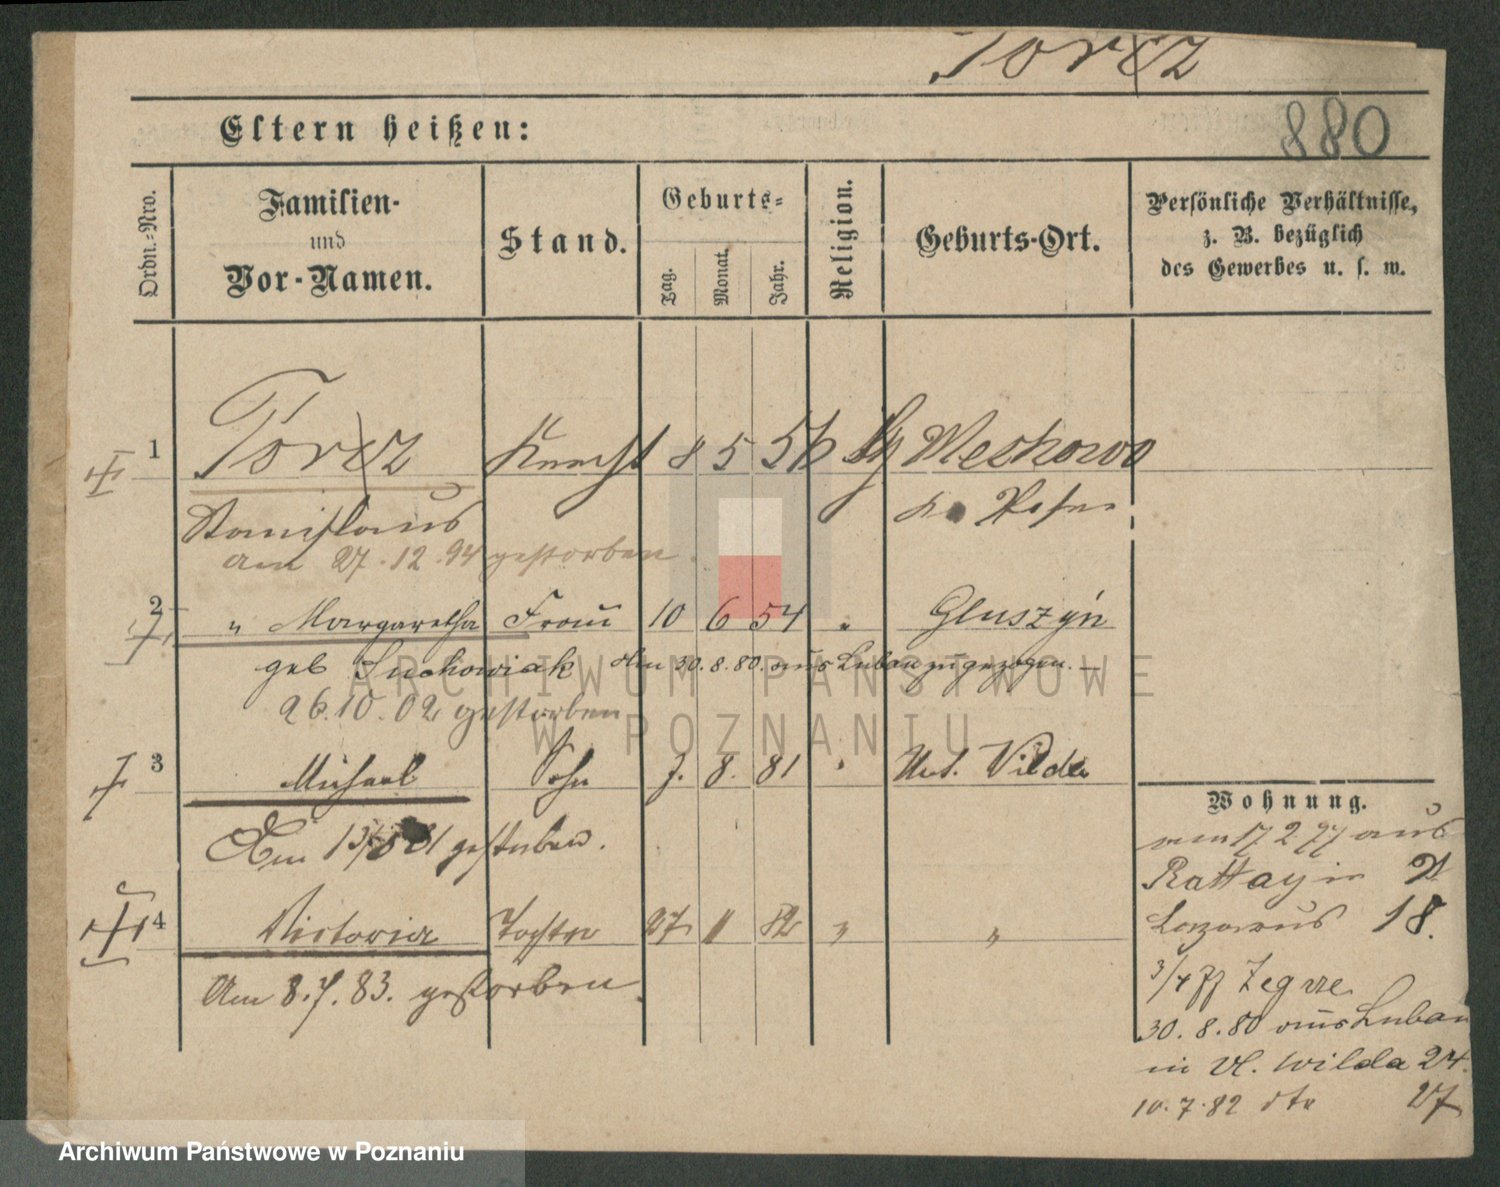 Torz
880
Eltern heißen:
Ordn.-Nro.
Familien-
und
Vor-Namen.
Stand.
Geburts-
Tag.
Monat.
Jahr.
Religion.
Geburts-Ort.
Persönliche Verhältnisse,
z. B. bezüglich
des Gewerbes u. s. w.
1 Torz Knecht 8 5 56 Meckowo
Stanislaus
am 27.12.94 gestorben.
2 " Margaretha Frau 10 6 54 " Gluszyn
geb Suchowiak Am 30.8.80. aus Luban zugezogen. —
26.10.02 gestorben
3 Michael Sohn 7. 8. 81 " Unt. Wilda
Am 13/8 81 gestorben.
4 Victoria Tochter 27 11 82 " "
Am 8.7.83. gestorben.
Wohnung.
17 2 77 aus
Rattay in St
Lazarus 18.
3/4 Zegrze
30.8.80 aus Luban
in U. Wilda 24.
10.7.82 dto 27
ARCHIWUM PAŃSTWOWE
W POZNANIU
Archiwum Państwowe w Poznaniu